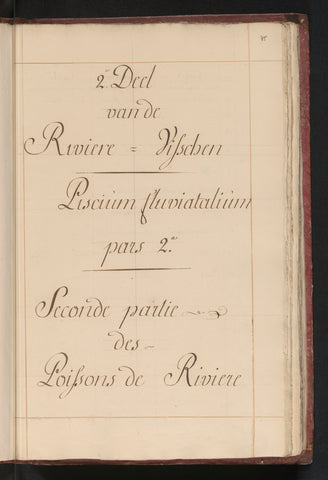 2. Deel
van de
Riviere = Visschen
Piscium fluviatalium
pars 2.a
Seconde partie
des
Poissons de Riviere